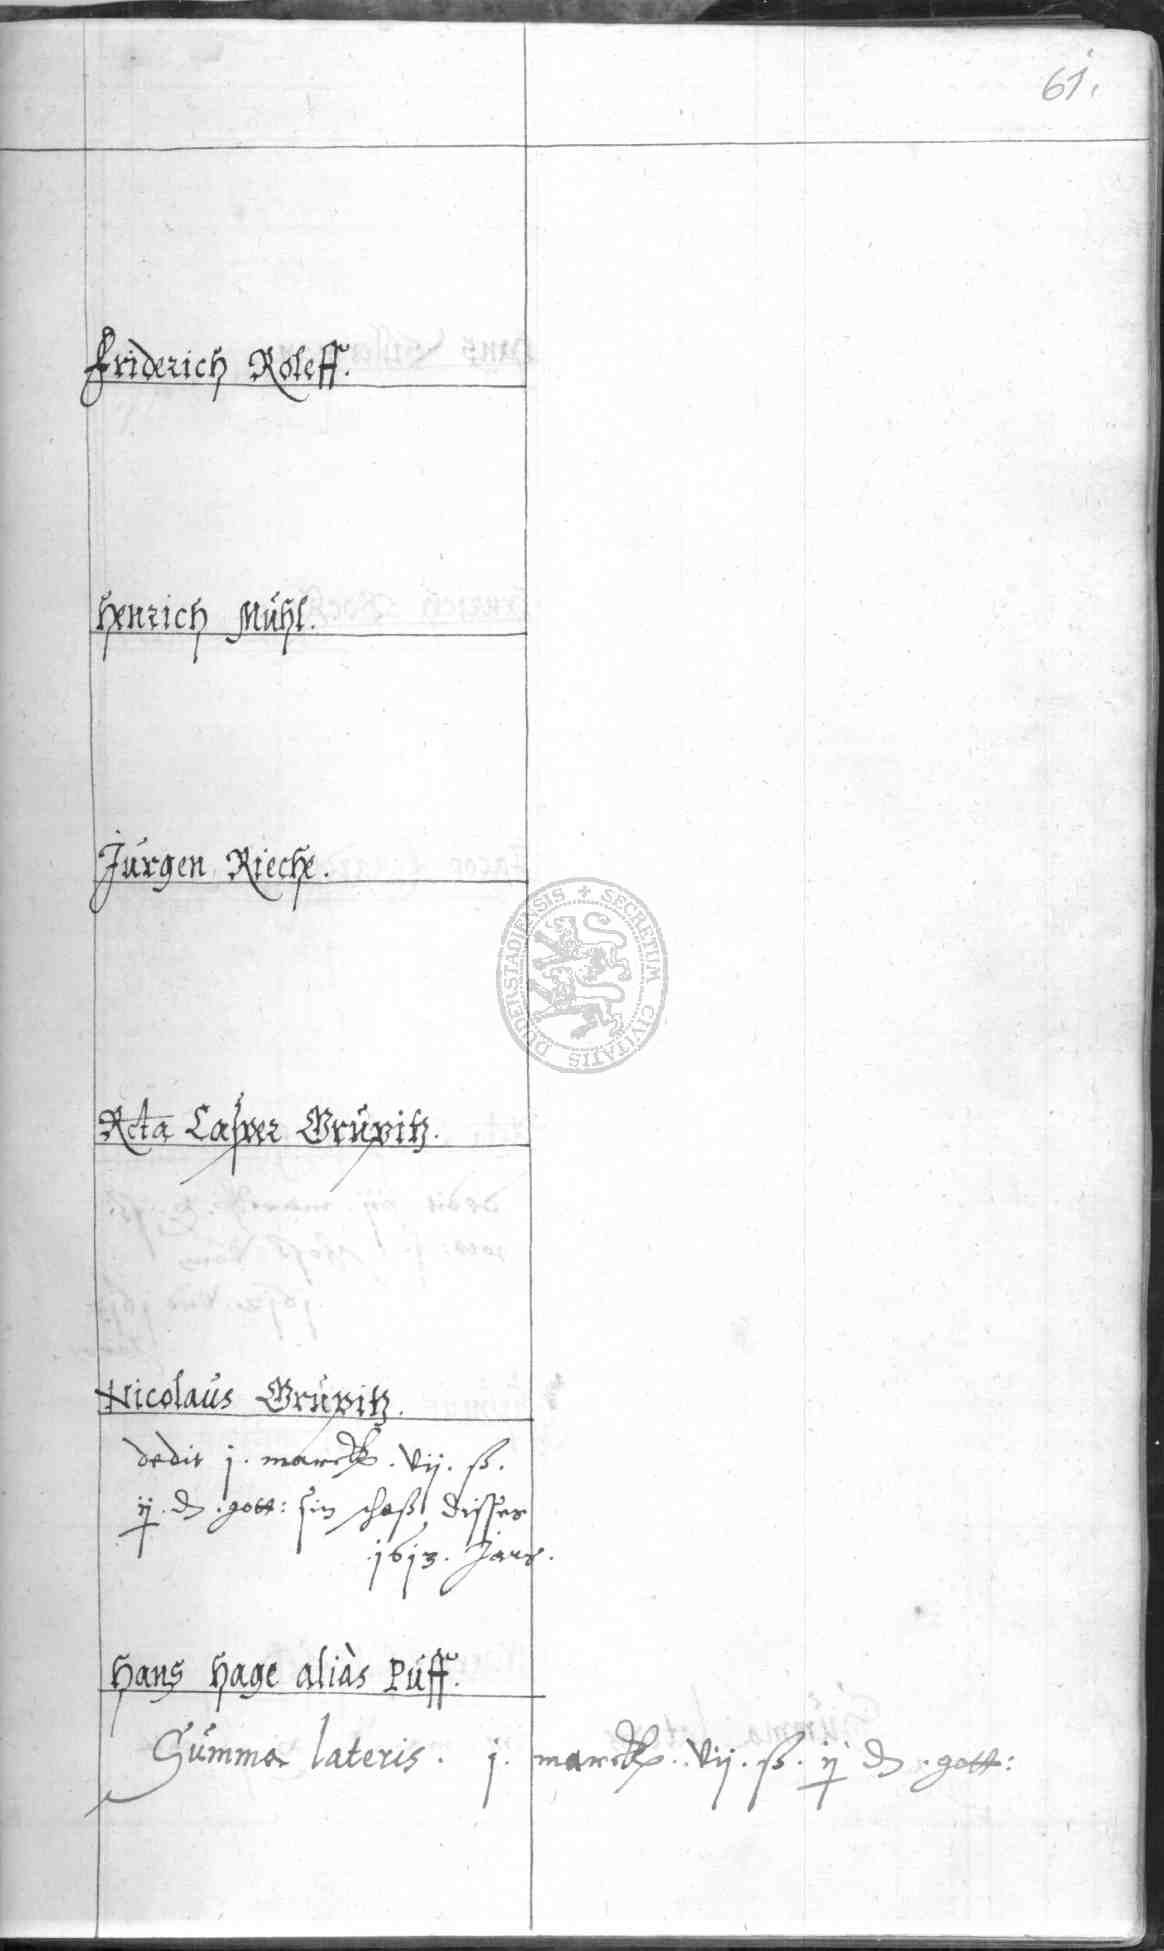 61.
Friderich Roleff.
Henrich Mühl.
Jürgen Rieche.
SECRETUM CIVITATIS DUDERSTADIENSIS
Rcta Casper Grüpitz.
Nicolaus Grüpitz.
dedit j. marck. vij. ß.
ij. d. gott: sin schoß disses
1613. Jars.
Hans Hage aliàs Puff.
Summa lateris. j. marck. vij. ß. ij d. gott: